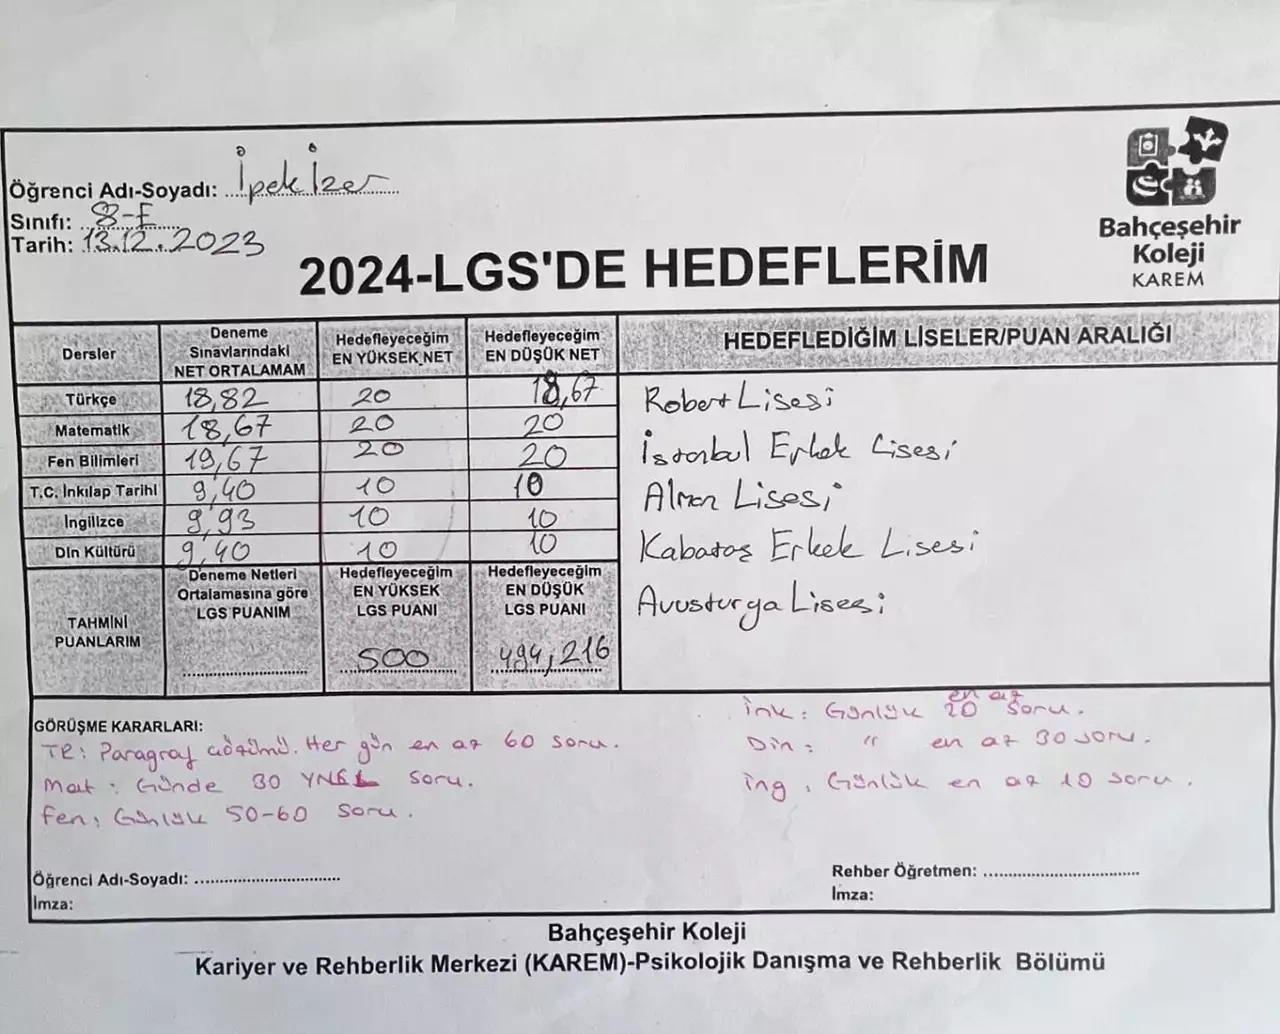 Öğrenci Adı-Soyadı: İpek İzer
Sınıfı: 8-E
Tarih: 13.12.2023
Bahçeşehir
Koleji
KAREM
2024-LGS'DE HEDEFLERİM
Dersler
Deneme
Sınavlarındaki
NET ORTALAMAM
Hedefleyeceğim
EN YÜKSEK NET
Hedefleyeceğim
EN DÜŞÜK NET
HEDEFLEDİĞİM LİSELER/PUAN ARALIĞI
Türkçe 18,82 20 18,67
Matematik 18,67 20 20
Fen Bilimleri 19,67 20 20
T.C. İnkılap Tarihi 9,40 10 10
İngilizce 9,93 10 10
Din Kültürü 9,40 10 10
Robert Lisesi
İstanbul Erkek Lisesi
Alman Lisesi
Kabataş Erkek Lisesi
Avusturya Lisesi
TAHMİNİ
PUANLARIM
Deneme Netleri
Ortalamasına göre
LGS PUANIM
Hedefleyeceğim
EN YÜKSEK
LGS PUANI
500
Hedefleyeceğim
EN DÜŞÜK
LGS PUANI
494,216
GÖRÜŞME KARARLARI:
TR: Paragraf çözümü. Her gün en az 60 soru.
Mat: Günde 30 YNEL soru.
Fen: Günlük 50-60 soru.
İnk: Günlük en az 20 soru.
Din: " en az 30 soru.
İng: Günlük en az 10 soru.
Öğrenci Adı-Soyadı:
İmza:
Rehber Öğretmen:
İmza:
Bahçeşehir Koleji
Kariyer ve Rehberlik Merkezi (KAREM)-Psikolojik Danışma ve Rehberlik Bölümü